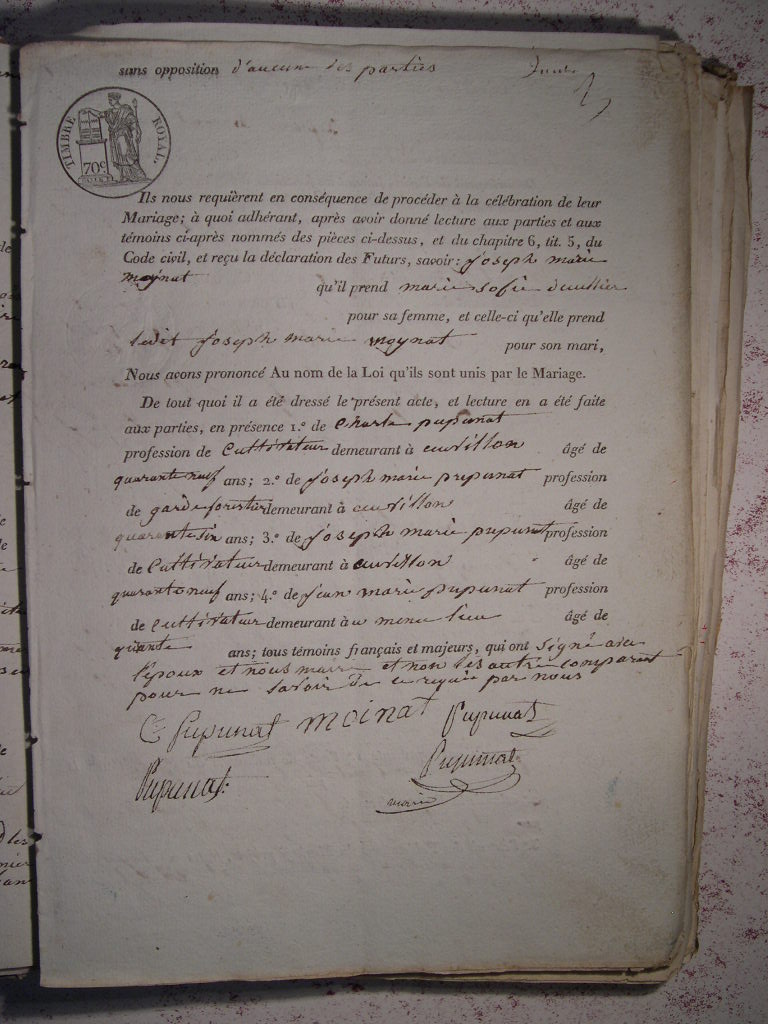 sans opposition d'aucune des parties
TIMBRE ROYAL.
70c
Ils nous requièrent en conséquence de procéder à la célébration de leur
Mariage; à quoi adhérant, après avoir donné lecture aux parties et aux
témoins ci-après nommés des pièces ci-dessus, et du chapitre 6, tit. 5, du
Code civil, et reçu la déclaration des Futurs, savoir: joseph marie
moynat qu'il prend marie sofie
pour sa femme, et celle-ci qu'elle prend
ledit joseph marie moynat pour son mari,
Nous avons prononcé Au nom de la Loi qu'ils sont unis par le Mariage.
De tout quoi il a été dressé le présent acte, et lecture en a été faite
aux parties, en présence 1.º de Charle pupunat
profession de Cultivateur demeurant à curtillon âgé de
quarante neuf ans; 2.º de joseph marie pupunat profession
de garde forestier demeurant à curtillon âgé de
quarante six ans; 3.º de joseph marie pupunat profession
de Cultivateur demeurant à curtillon âgé de
quarante neuf ans; 4.º de jean marie pupunat profession
de Cultivateur demeurant à u meme lieu âgé de
ans; tous témoins français et majeurs, qui ont signé avec
l'epoux et nous maire et non les autre comparant
pour ne savoir de ce requis par nous
C Pupunat moinat Pupunat
Pupunat Pupunat
maire